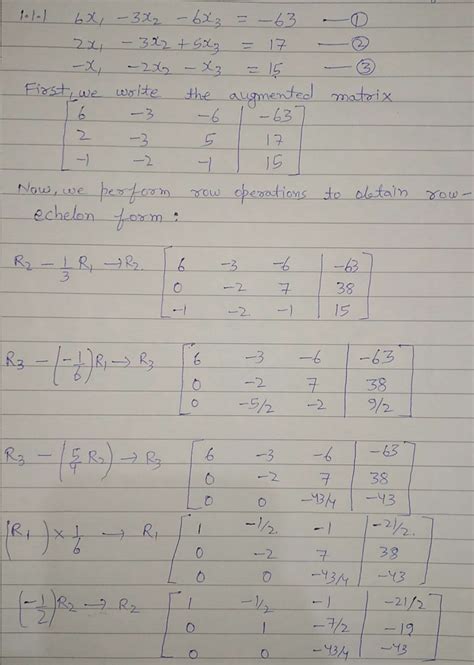 1.1.1 6x₁ -3x₂ -6x₃ = -63 —①
2x₁ -3x₂ +5x₃ = 17 —②
-x₁ -2x₂ -x₃ = 15 —③
First, we write the augmented matrix
[6 -3 -6 | -63
2 -3 5 | 17
-1 -2 -1 | 15]
Now, we perform row operations to obtain row-
echelon form:
R₂ - 1/3 R₁ → R₂. [6 -3 -6 | -63
0 -2 7 | 38
-1 -2 -1 | 15]
R₃ - (-1/6)R₁ → R₃ [6 -3 -6 | -63
0 -2 7 | 38
0 -5/2 -2 | 9/2]
R₃ - (5/4 R₂) → R₃ [6 -3 -6 | -63
0 -2 7 | 38
0 0 -43/4 | -43]
(R₁) × 1/6 → R₁ [1 -1/2 -1 | -21/2.
0 -2 7 | 38
0 0 -43/4 | -43]
(-1/2)R₂ → R₂ [1 -1/2 -1 | -21/2
0 1 -7/2 | -19
0 0 -43/4 | -43]